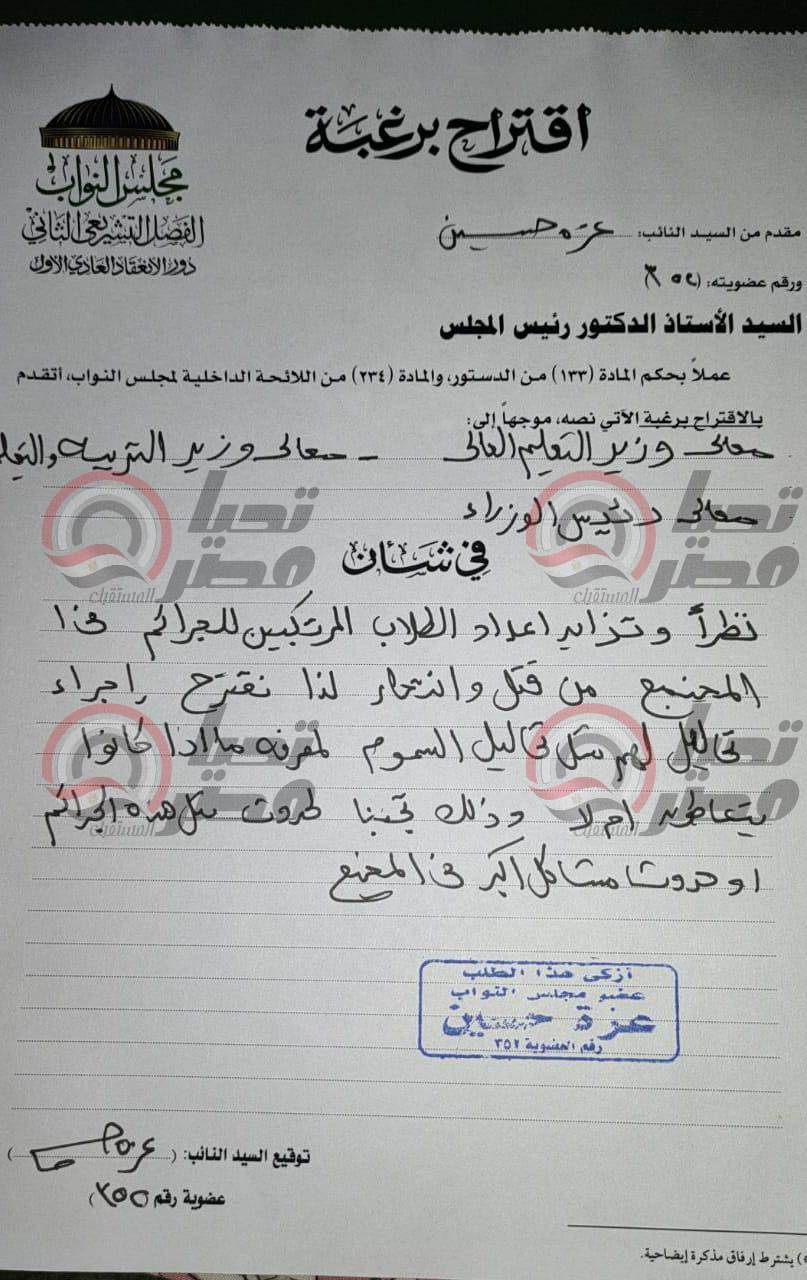 اقتراح برغبة
مجلس النواب
الفصل التشريعي الثاني
دور الانعقاد العادي الأول
مقدم من السيد النائب: عزه حسين
ورقم عضويته: (٣٥٢)
السيد الأستاذ الدكتور رئيس المجلس
عملاً بحكم المادة (١٣٣) من الدستور، والمادة (٢٣٤) من اللائحة الداخلية لمجلس النواب، أتقدم
بالاقتراح برغبة الآتي نصه، موجهاً إلى:
معالى وزير التعليم العالى - معالى وزير التربيه والتعل
معالى رئيس الوزراء
في شأن
نظراً وتزايد اعداد الطلاب المرتكبين للجرائم فى هذا
المجتمع من قتل وانتحار لذا نقترح اجراء
تحاليل لهم مثل تحاليل السموم لمعرفه ما اذا كانوا
يتعاطون ام لا وذلك تجنبنا لحدوث مثل هذه الجرائم
او حدوث مشاكل اكبر فى المجتمع
أزكى هذا الطلب
عضو مجلس النواب
عزة حسين
رقم العضوية ٣٥٢
توقيع السيد النائب: (عزه ح)
عضوية رقم (٣٥٢)
) يشترط إرفاق مذكرة إيضاحية.
تحيا مصر
المستقبل
تحيا مصر
المستقبل
تحيا مصر
المستقبل
تحيا مصر
المستقبل